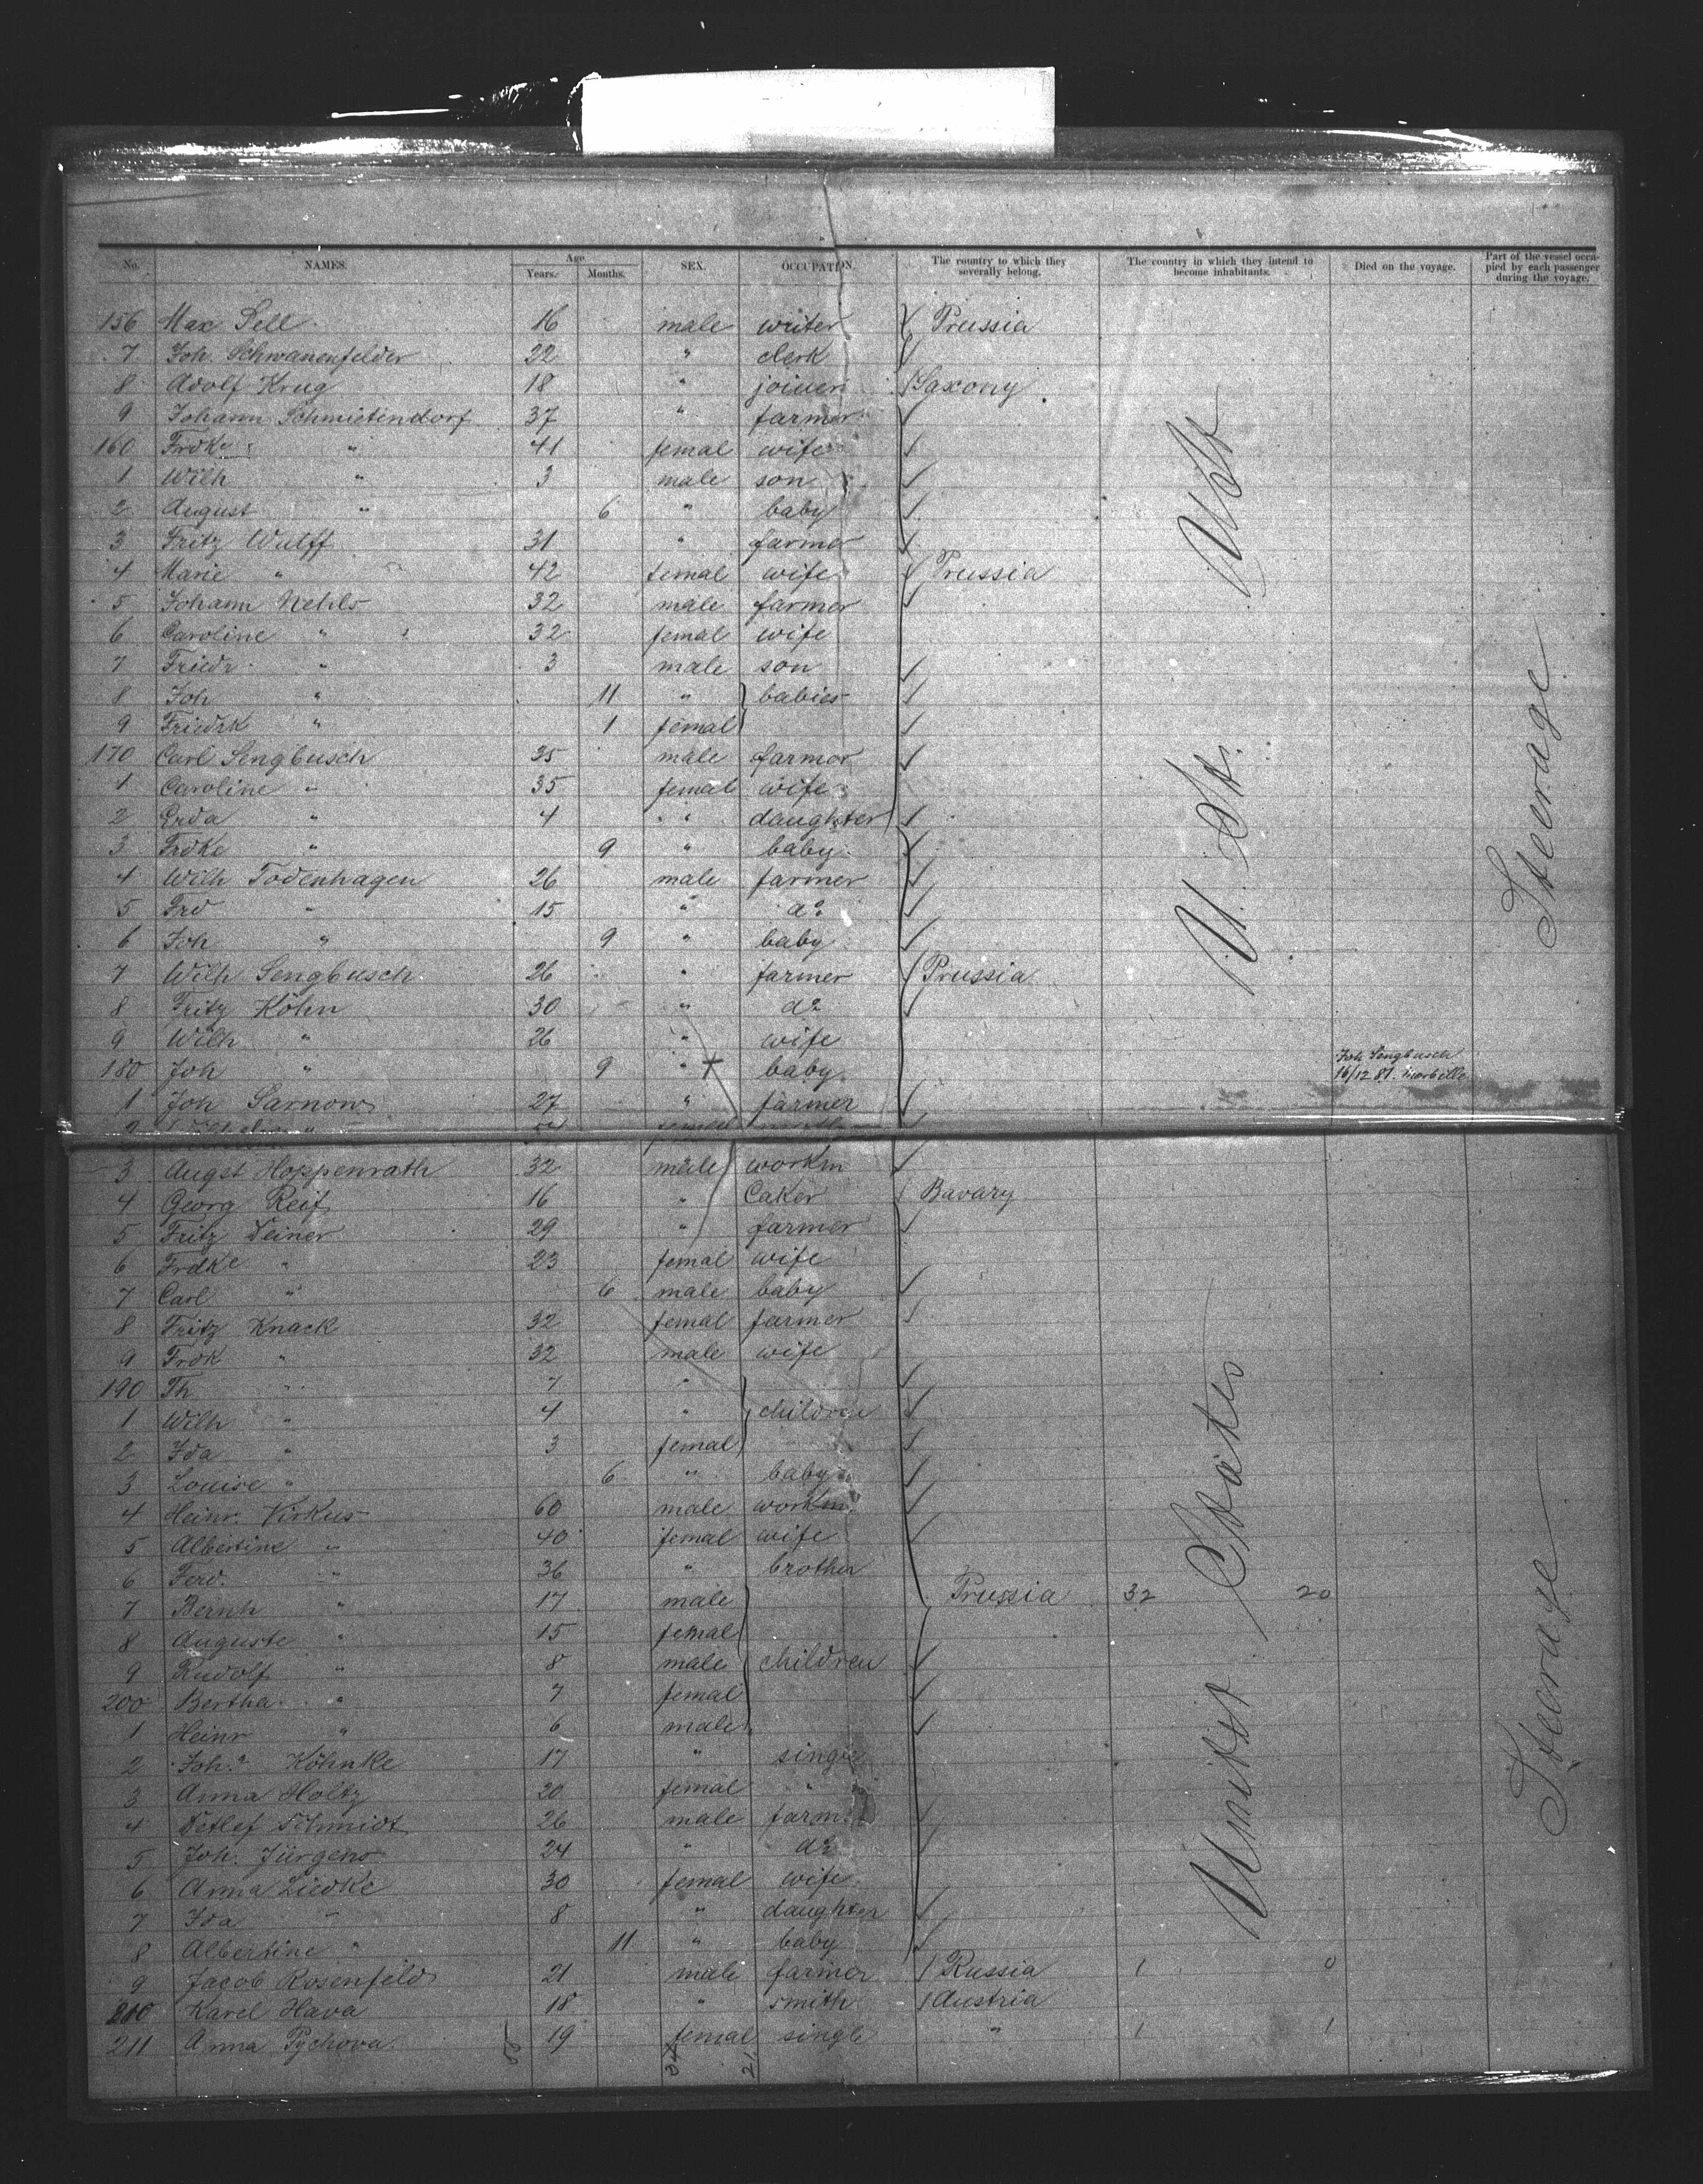 No. NAMES. Age Years. Months. SEX. OCCUPATION. The country to which they severally belong. The country in which they intend to become inhabitants. Died on the voyage. Part of the vessel occupied by each passenger during the voyage.
156 Max Sell 16 male writer Prussia
7 Joh. Schwanenfelder 22 " clerk
8 Adolf Krug 18 " joiner Saxony
9 Johann Schmietendorf 37 " farmer
160 Frdke " 41 femal wife
1 Wilh " 3 male son
2 August " 6 " baby
3 Fritz Wulff 31 " farmer
4 Marie " 42 femal wife Prussia
5 Johann Nehls 32 male farmer
6 Caroline " 32 femal wife
7 Friedr " 3 male son
8 Joh " 11 " babies
9 Friedrk " 1 femal
170 Carl Sengbusch 35 male farmer
1 Caroline " 35 femal wife
2 Erda " 4 " daughter
3 Frdke " 9 " baby
4 Wilh Todenhagen 26 male farmer
5 Frd " 15 " do
6 Joh " 9 " baby
7 Wilh Sengbusch 26 " farmer Prussia
8 Fritz Köhn 30 " do
9 Wilh " 26 " wife
180 Joh " 9 " baby Joh Sengbusch 16/12 81.
1 Joh Sarnow 27 " farmer
3 Augst Hoppenrath 32 male workm
4 Georg Reif 16 " Caker Bavary
5 Fritz Deiner 29 " farmer
6 Frdke " 23 femal wife
7 Carl " 6 male baby
8 Fritz Knack 32 femal farmer
9 Frdk " 32 male wife
190 Th " 7 "
1 Wilh " 4 " children
2 Ida " 3 femal
3 Louise " 6 " baby
4 Heinr. Virkus 60 male workm
5 Albertine " 40 femal wife
6 Ferd. " 36 " brother
7 Bernh " 17 male Prussia 32 20
8 Auguste " 15 femal
9 Rudolf " 8 male children
200 Bertha " 7 femal
1 Heinr " 6 male
2 Joh. Köhnke 17 " single
3 Anna Holtz 20 femal "
4 Detlef Schmidt 26 male farm
5 Joh. Jürgens 24 " do
6 Anna Liedke 30 femal wife
7 Ida " 8 " daughter
8 Albertine " 11 " baby
9 Jacob Rosenfeld 21 male farmer Russia 1 0
210 Karel Hava 18 " smith Austria
211 Anna Pychova 19 femal single " 1 1
34 21
U. St.
Unitet States
Steerage
Steerage